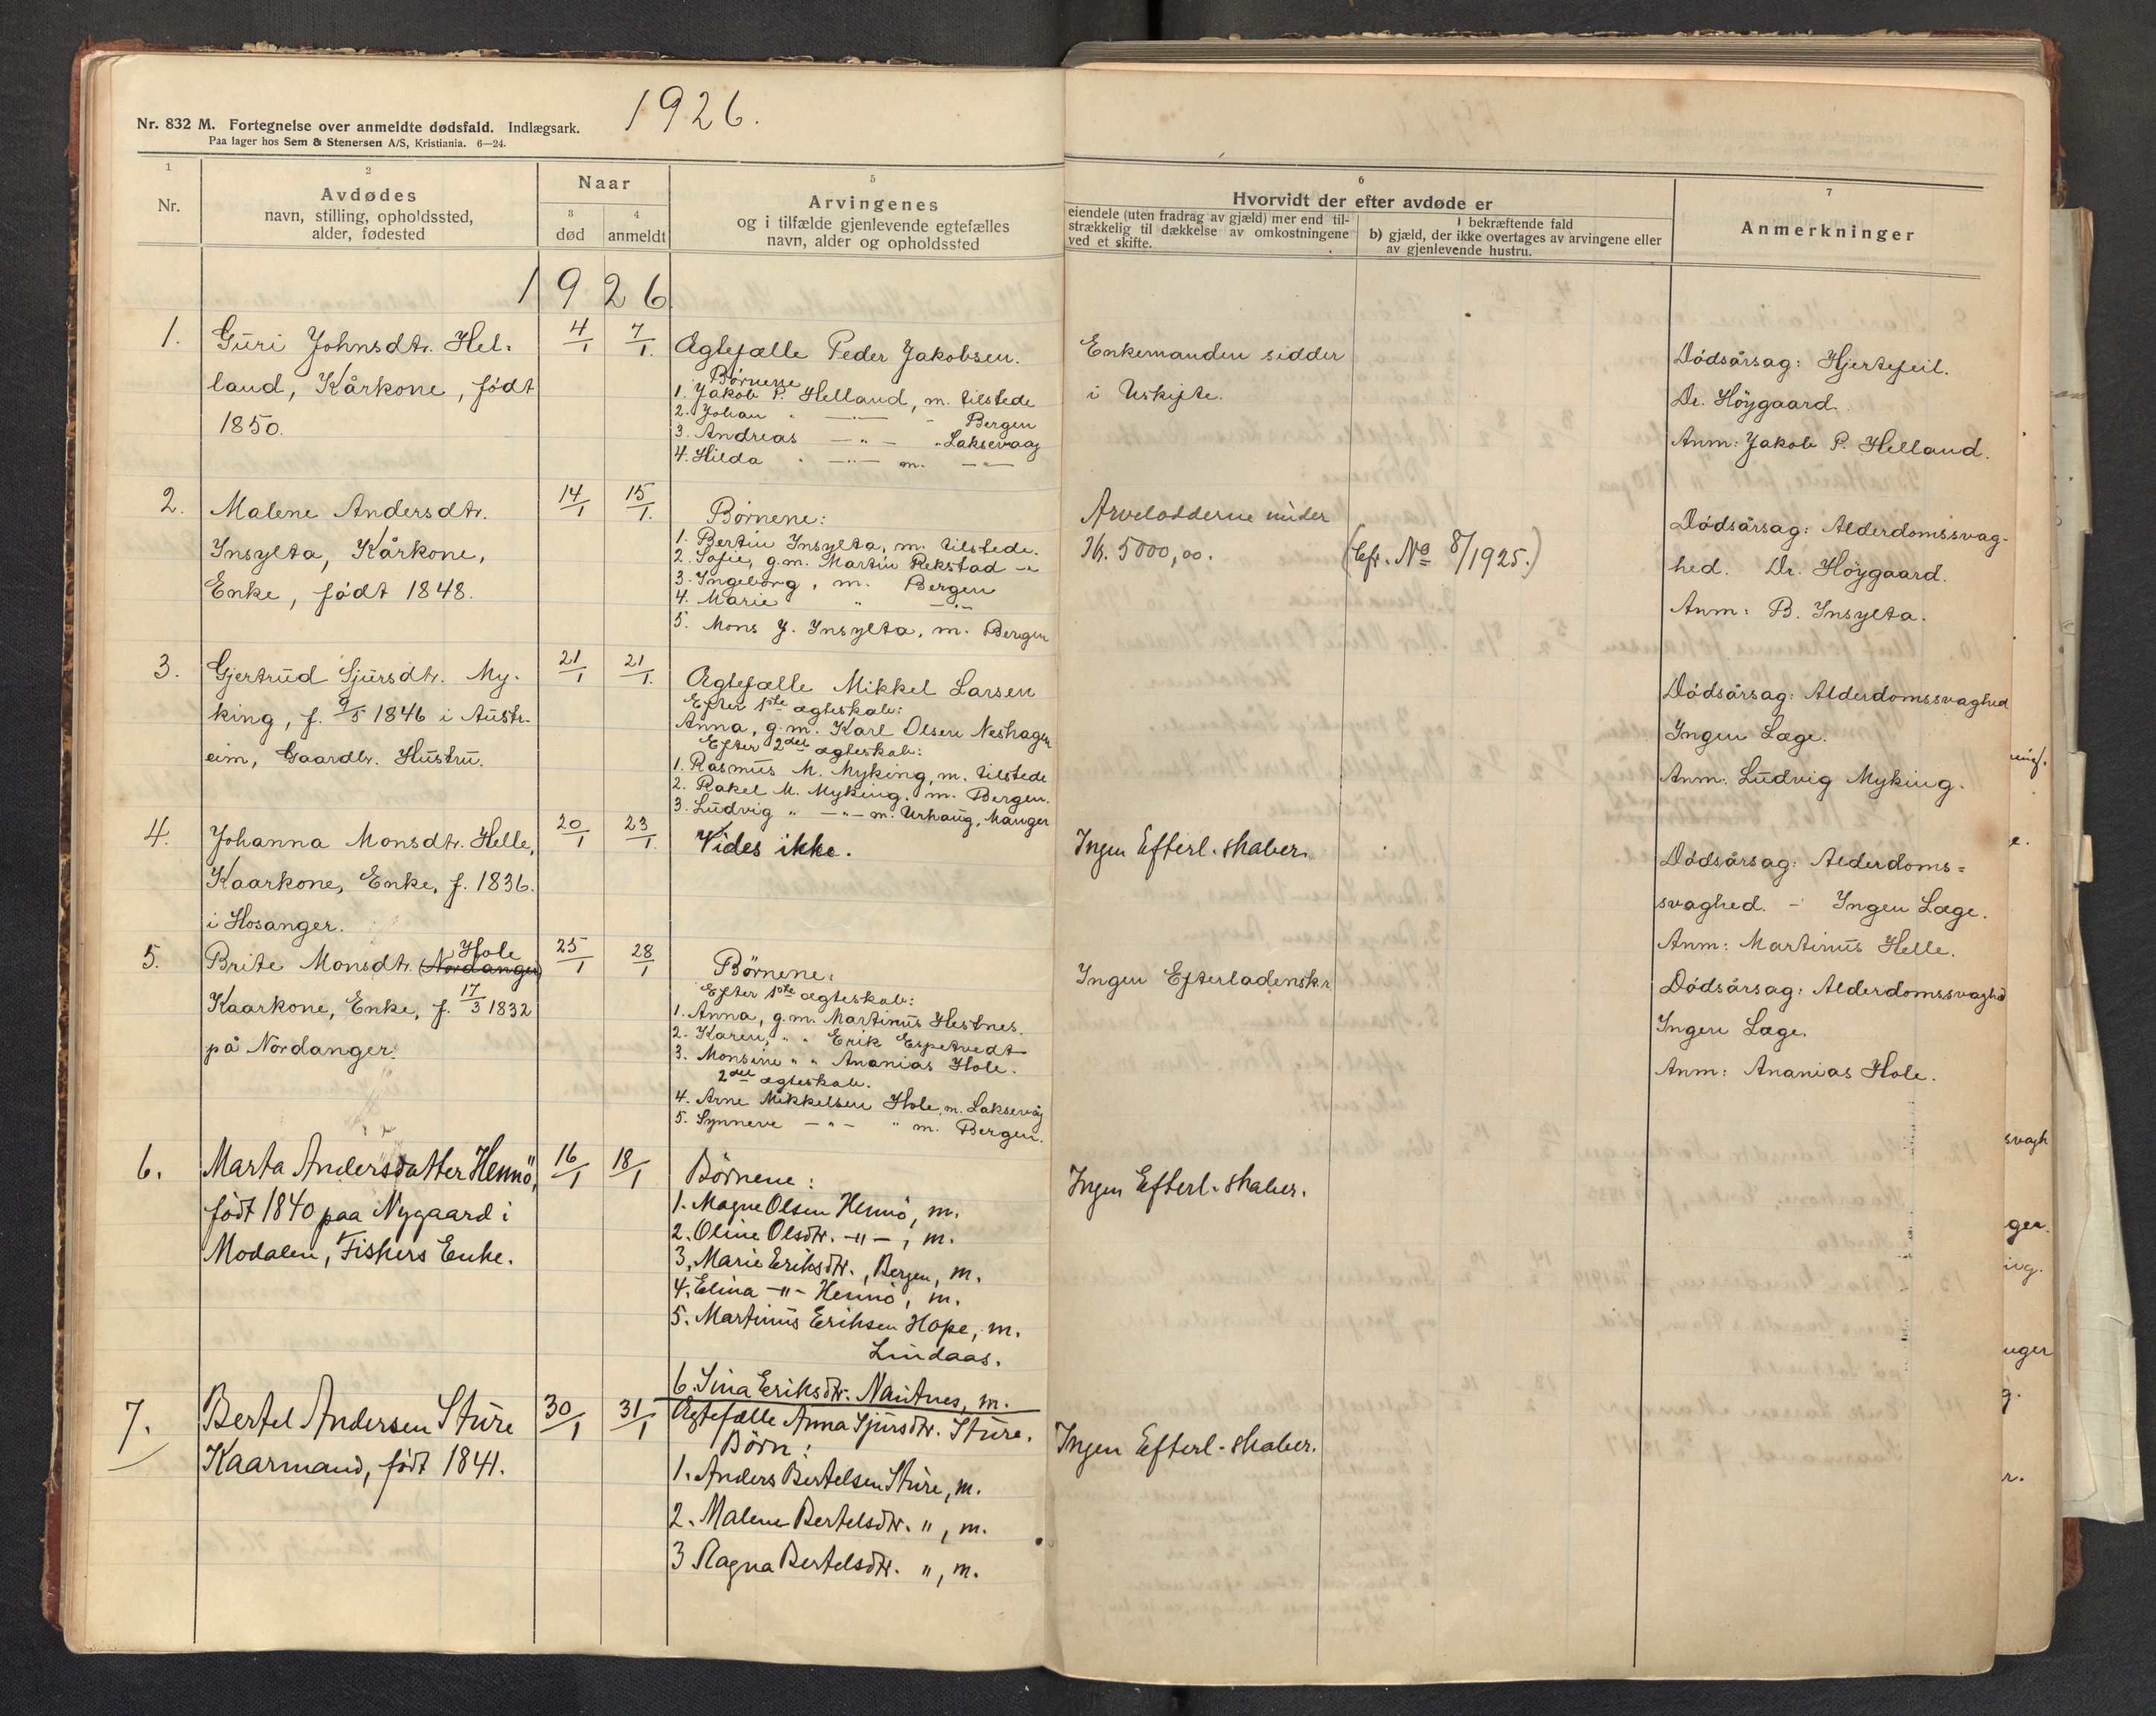 1926.
Nr. 832 M. Fortegnelse over anmeldte dødsfald. Indlægsark.
Paa lager hos Sem & Stenersen A/S, Kristiania. 6—24.
1
Nr.
2
Avdødes
navn, stilling, opholdssted,
alder, fødested
Naar
3
død
4
anmeldt
5
Arvingenes
og i tilfælde gjenlevende egtefælles
navn, alder og opholdssted
6
Hvorvidt der efter avdøde er
eiendele (uten fradrag av gjæld) mer end til-
strækkelig til dækkelse av omkostningene
ved et skifte.
I bekræftende fald
b) gjæld, der ikke overtages av arvingene eller
av gjenlevende hustru.
7
Anmerkninger
1926
1.
Guri Johnsdtr. Hel-
land, Kårkone, født
1850.
4/1
7/1.
Ægtefælle Peder Jakobsen.
Børnene
1. Jakob P. Helland, m. tilstede
2. Johan " —"— " Bergen
3. Andreas —"— " Laksevaag
4. Hilda " —"— m. —"—
Enkemanden sidder
i Uskifte.
Dödsårsag: Hjertefeil.
Dr. Höygaard.
Anm: Jakob P. Helland.
2.
Malene Andersdtr.
Insylta, Kårkone,
Enke, født 1848.
14/1
15/1.
Børnene:
1. Bertin Insylta, m. tilstede.
2. Sofie, g.m. Martin Rekstad —"
3. Ingeborg, m. Bergen
4. Marie " —"—
5. Mons J. Insylta, m. Bergen
Arvelodderne under
Kr. 5000,00.
(Cfr. No 8/1925.)
Dödsårsag: Alderdomssvag-
hed. Dr. Höygaard.
Anm: B. Insylta.
3.
Gjertrud Sjursdtr. My-
king, f. 9/5 1846 i Austr-
eim, Gaardbr. Hustru.
21/1
21/1.
Ægtefælle Mikkel Larsen
Efter 1ste ægteskab:
Anna, g.m. Karl Olsen Neshagen
Efter 2det ægteskab:
1. Rasmus M. Myking, m. tilstede
2. Rakel M. Myking, m. Bergen.
3. Ludvig " —"— m. Urhaug, Manger
Dödsårsag: Alderdomssvaghed
Ingen Læge.
Anm: Ludvig Myking.
4.
Johanna Monsdtr. Helle,
Kaarkone, Enke, f. 1836.
i Hosanger.
20/1
23/1.
Vides ikke.
Ingen Efterl.skaber.
Dödsårsag: Alderdoms=
svaghed. - Ingen Læge.
Anm: Martinus Helle.
5.
Hole
Brite Monsdtr. (Nordanger)
Kaarkone, Enke, f. 17/3 1832
på Nordanger.
25/1
28/1
Börnene:
Efter 1ste ægteskab:
1. Anna, g.m. Martinus Hestnes.
2. Karen, " " Erik Espetvedt
3. Monsine " " Ananias Hole.
2det ægteskab.
4. Arne Mikkelsen Hole, m. Laksevåg
5. Synneve —"— " m. Bergen.
Ingen Efterladensk.r
Dödsårsag: Alderdomssvaghd
Ingen Læge.
Anm: Ananias Hole.
6.
Marta Andersdatter Hennö,
født 1840 paa Nygaard i
Modalen, Fiskers Enke.
16/1
18/1
Börnene:
1. Magne Olsen Hennö, m.
2. Oline Olsdtr. —"—, m.
3. Marie Eriksdtr., Bergen, m.
4. Elina —"— Hennö, m.
5. Martinus Eriksen Hope, m.
Lindaas.
6. Sina Eriksdtr. Nautnes, m.
Ingen Efterl.skaber.
7.
Bertel Andersen Sture
Kaarmand, født 1841.
30/1
31/1
Ægtefælle Anna Sjursdtr. Sture.
Börn:
1. Anders Bertelsen Sture, m.
2. Malene Bertelsdtr. ", m.
3 Ragna Bertelsdtr. ", m.
Ingen Efterl.skaber.